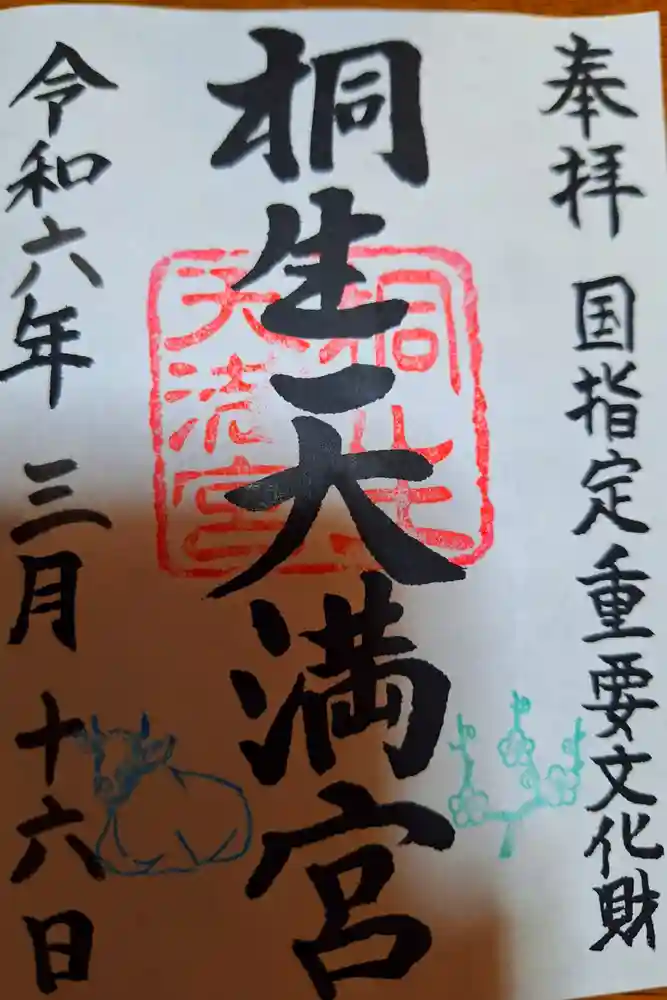 奉拝 国指定重要文化財
桐生天満宮
桐生
天満宮
令和六年 三月 十六日